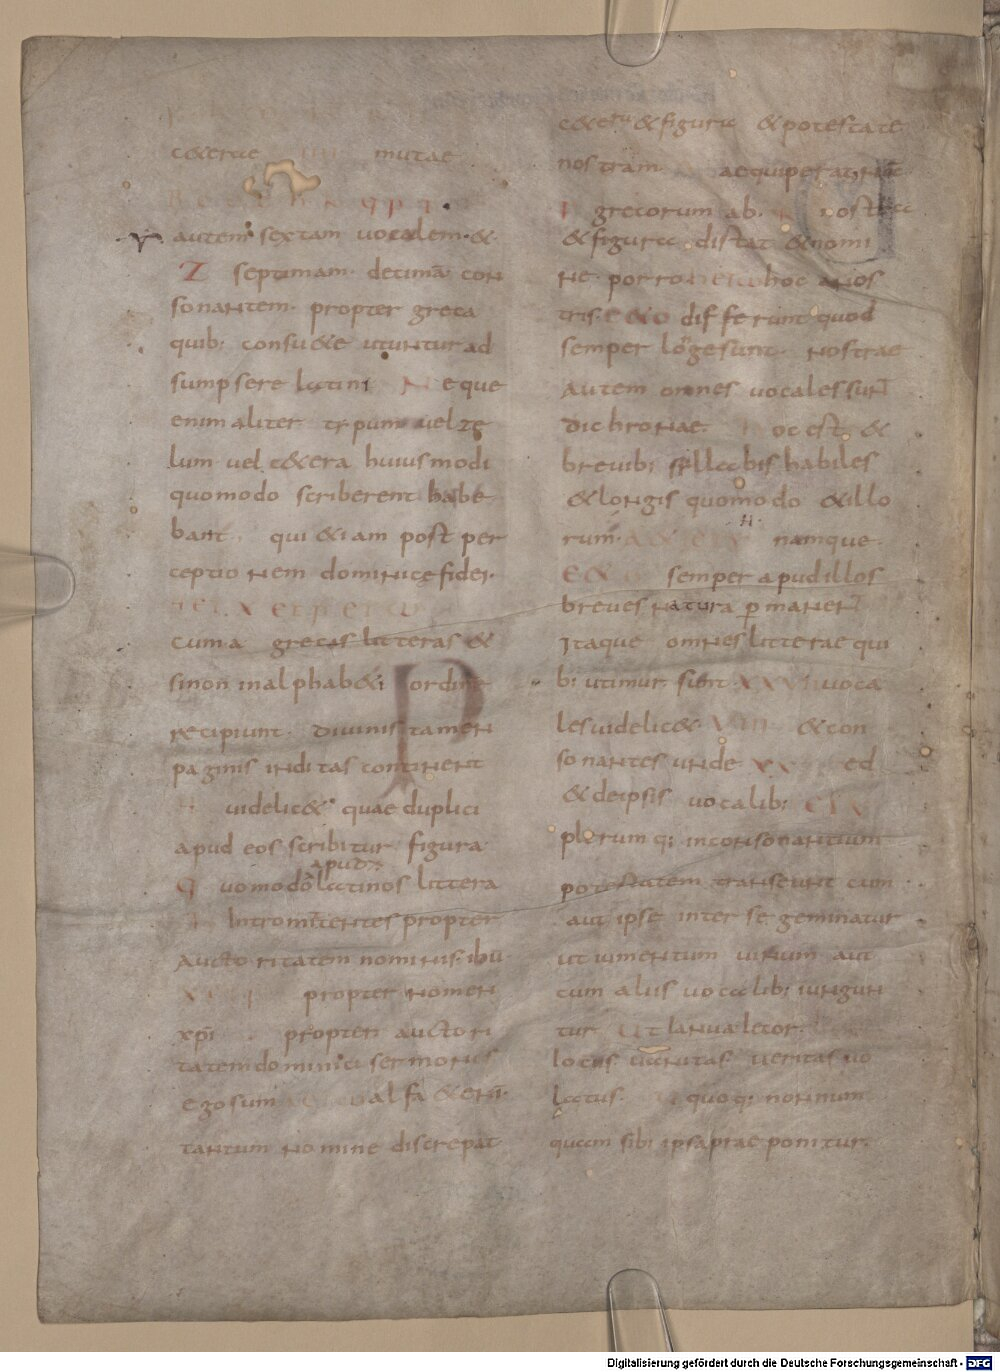 c&erae mutae
B C D G H K q p q
Y autem sextam uocalem &
Z septimam decimā con
sonantem propter greca
quib; consu&e utuntur ad
sumpsere latini Neque
enim aliter typum uel ze
lum uel c&era huiusmodi
quomodo scriberent habe
bant, qui &iam post per
ceptionem dominice fidei
et X et p et ω
cuma grecis litteras &
si non in alphab&i ordine
recipiunt diuinis tamen
paginis inditas continent
videlic& quae duplici
apud eos scribitur figura
apud
Quomodo latinos littera
Intromittentes propter
auctoritatem nominis ibu
propter nomen
xpi propter auctori
tatem dominici sermonis
ego sum alfa & enī
tantum nomine discrepat
c&era & figura & potestate
nostram aequiperat
grecorum ab nostra
& figura distat & nomi
ne porro hoc a nos
tris e & o differunt quod
semper lōge sunt nostrae
autem omnes uocales sunt
dichronae hoc est &
breuib; syllabis habiles
& longis quomodo & illo
rum A & I & Y namque
E & O semper apud illos
breues natura p manent
Itaque omnes litterae qui
b; utimur sunt XXVII uoca
les uidelic& VIII & con
sonantes unde XX Sed
& de ipsis uocalib;
plerumq; in consonantium
potestatem transeunt cum
aut ipse inter se geminatur
ut iumentum uirum aut
cum aliis uocalib; iungun
tur Ut Ianua Ietor
Iocus uanitas ueritas uo
latus quoq; nonnum
quam sibi ipsa praeponitur
Digitalisierung gefördert durch die Deutsche Forschungsgemeinschaft - DFG